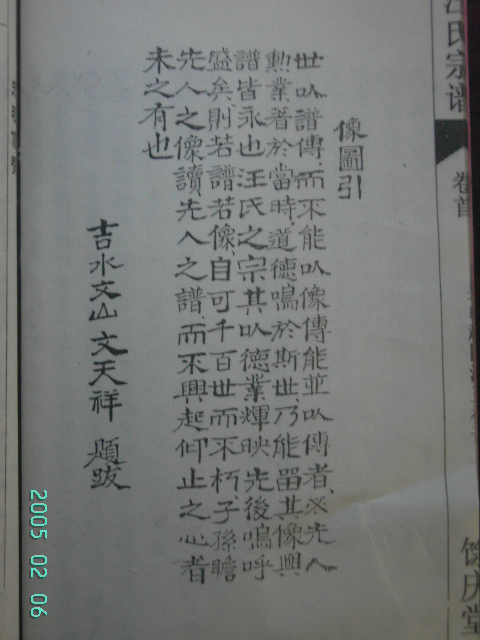 氏宗谱
卷首
庆堂
像圖引
世以譜傳而不能以像傳能並以傳者必先人
勲業著於當時道德鳴於斯世乃能留其像與
譜皆永也汪氏之宗其以德業輝映先後嗚呼
盛矣則若譜若像自可千百世而不朽子孫瞻
先人之像讀先人之譜而不興起仰止之心者
未之有也
吉水文山文天祥題跋
2005 02 06